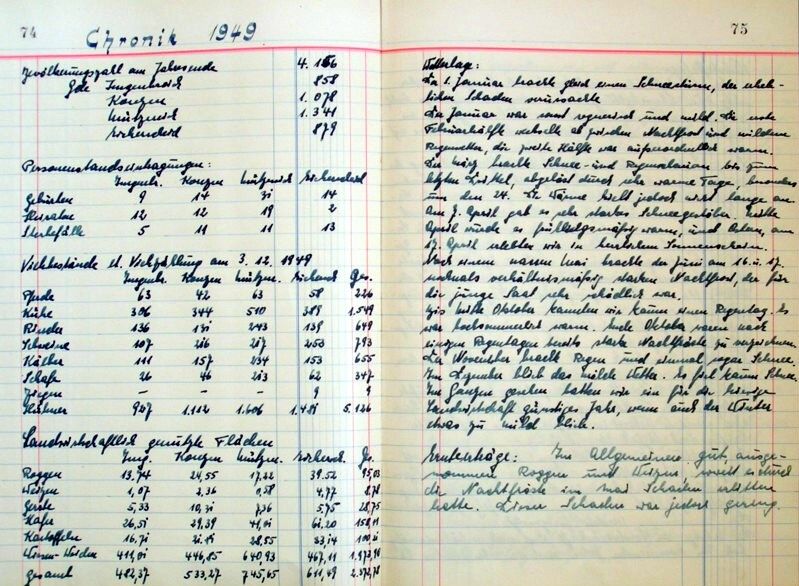 74
Chronik 1949
Bevölkerungszahl am Jahresende 4.156
Gde Imgenbroich 858
Konzen 1.078
Mützenich 1.341
Eicherscheid 879
Personenstandseintragungen:
Imgenbr. Konzen Mützenich Eicherscheid
Geburten 9 14 31 14
Heiraten 12 12 19 2
Sterbefälle 5 11 11 13
Viehbestände lt. Viehzählung am 3.12.1949
Imgenbr. Konzen Mützen. Eichersch. Ges.
Pferde 63 42 63 58 226
Kühe 306 344 510 389 1.549
Rinder 136 131 243 139 649
Schweine 107 216 217 253 793
Kälber 111 157 234 153 655
Schafe 26 46 213 62 347
Ziegen - - - 9 9
Hühner 927 1.112 1.606 1.481 5.126
Landwirtschaftlich genutzte Flächen
Img. Konzen Mützen. Eichersch. Ges.
Roggen 13,74 24,55 17,22 39,52 95,03
Weizen 1,07 2,36 0,58 4,77 8,78
Gerste 5,33 10,31 7,36 5,75 28,75
Hafer 26,51 29,39 41,01 61,20 158,11
Kartoffeln 16,71 21,19 28,55 33,14
Wiesen-Weiden 411,01 446,85 640,93 467,11
gesamt 482,37 533,27 745,65 611,49 2.372,78
75
Wetterlage:
Der 1. Januar brachte gleich einen Schneesturm, der erheb-
lichen Schaden verursachte
Der Januar war sonst regnerisch und mild. Die erste
Februarhälfte wechselte ab zwischen Nachtfrost und mildem
Regenwetter, die zweite Hälfte war außerordentlich warm.
Der März brachte Schnee- und Regenschauern bis zum
letzten Drittel, abgelöst durch sehr warme Tage, besonders
um den 24. Die Wärme hielt jedoch nicht lange an.
Am 7. April gab es sehr starkes Schneegestöber. Mitte
April wurde es frühlingsmäßig warm, und Ostern, am
17. April erlebten wir in herrlichem Sonnenschein.
Nach einem warmen Mai brachte der Juni am 16. u. 17.
nochmals verhältnismäßig starken Nachtfrost, der für
die junge Saat sehr schädlich war.
Bis Mitte Oktober kannten wir kaum einen Regentag. Es
war hochsommerlich warm. Ende Oktober waren nach
einigen Regentagen bereits starke Nachtfröste zu verzeichnen.
Der November brachte Regen und einmal sogar Schnee.
Im Dezember blieb das milde Wetter. Es fiel kaum Schnee.
Im Ganzen gesehen hatten wir ein für die hiesige
Landwirtschaft günstiges Jahr, wenn auch der Winter
etwas zu mild blieb.
Ernteerträge: Im Allgemeinen gut, ausge-
nommen Roggen und Weizen, soweit es durch
die Nachtfröste im Mai Schaden erlitten
hatte. Dieser Schaden war jedoch gering.